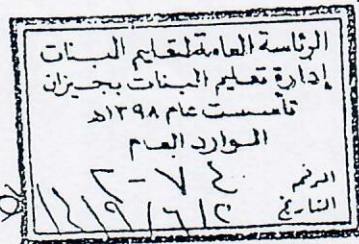 الرئاسة العامة لتعليم البنات
إدارة تعليم البنات بجيزان
تأسست عام ١٣٩٨هـ
الوارد العام
الرقم ٢٠٧٤
التاريخ ١٤١٩/٦/٢